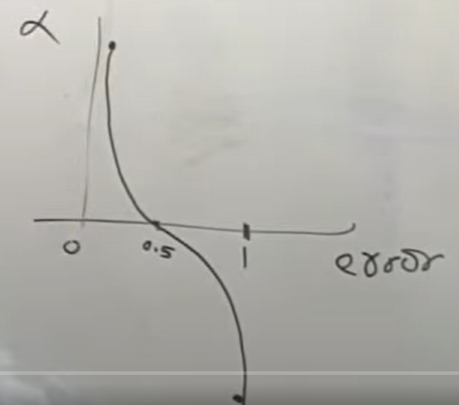 α
0 0.5 1 error